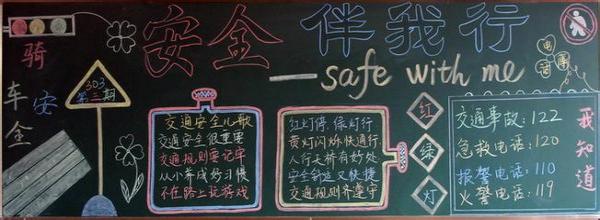 安全 伴我行
—safe with me
骑车安全
303
第二期
交通安全儿歌
交通安全很重要
交通规则要记牢
从小养成好习惯
不在路上玩游戏
红灯停,绿灯行
黄灯闪烁快通行
人行天桥有好处
安全舒适又快捷
交通规则齐遵守
红
绿
灯
电话
交通事故:122
急救电话:120
报警电话:110
火警电话:119
我知道